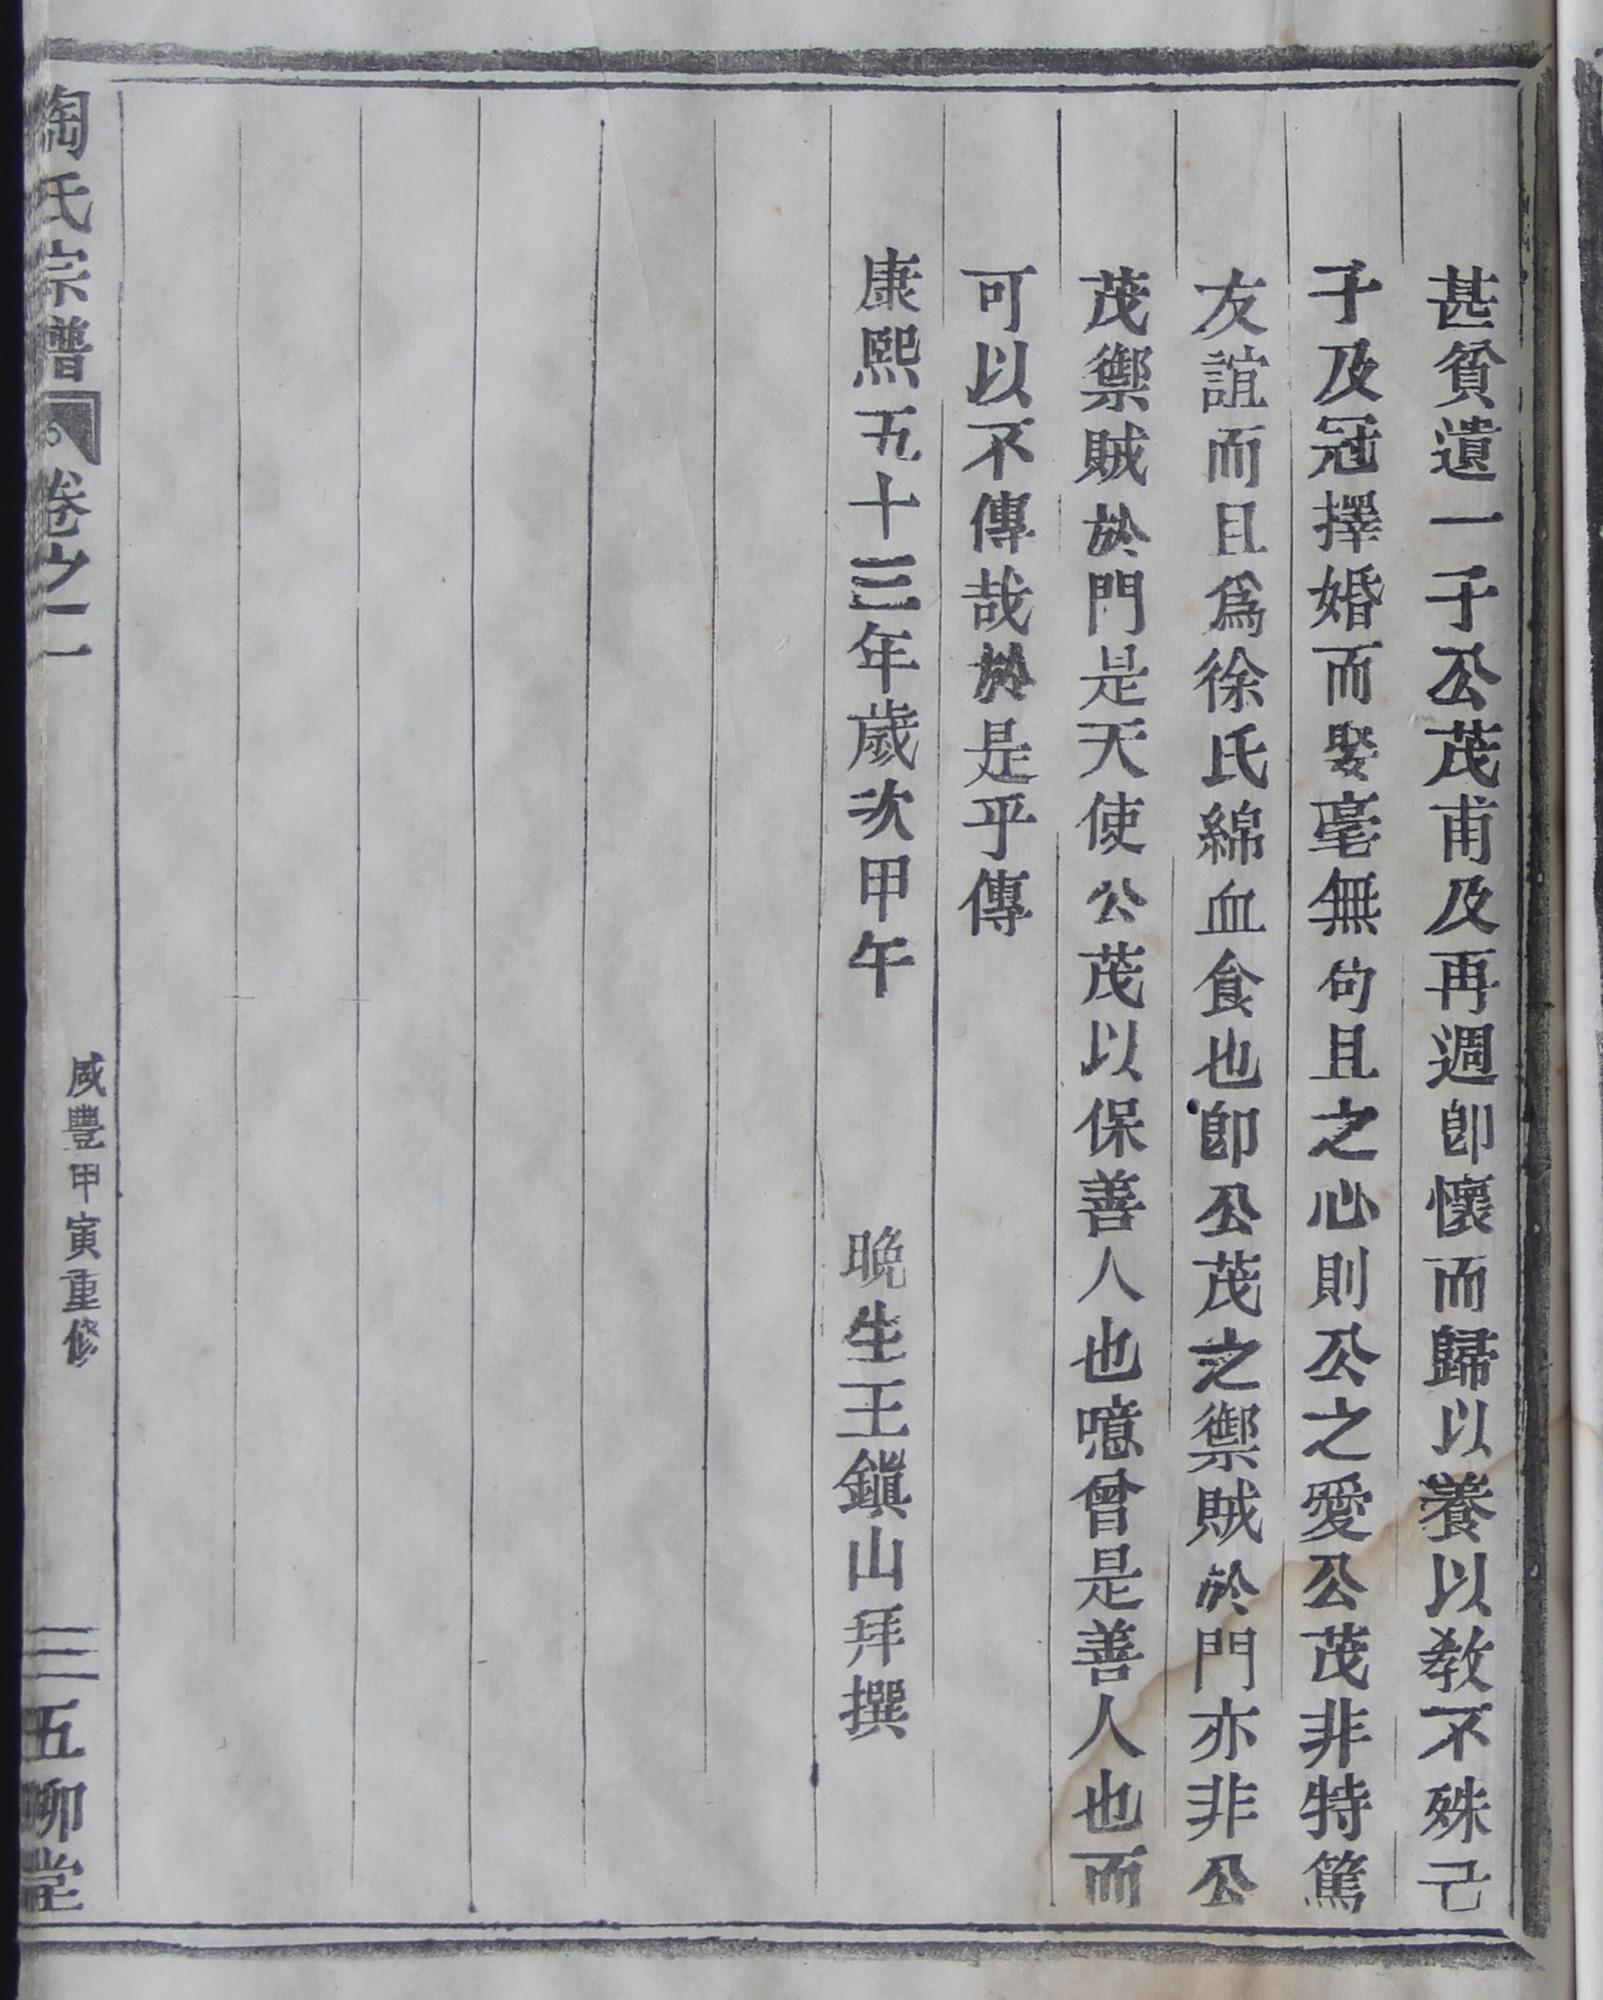 甚貧遺一子公茂甫及再週卽懷而歸以養以敎不殊己
子及冠擇婚而娶毫無句且之心則公之愛公茂非特篤
友誼而且爲徐氏綿血食也卽公茂之禦賊於門亦非公
茂禦賊於門是天使公茂以保善人也噫曾是善人也而
可以不傳哉於是乎傳
康熙五十三年歲次甲午 晚生王鎭山拜撰
陶氏宗譜 卷之二 咸豐甲寅重修 三 五柳堂